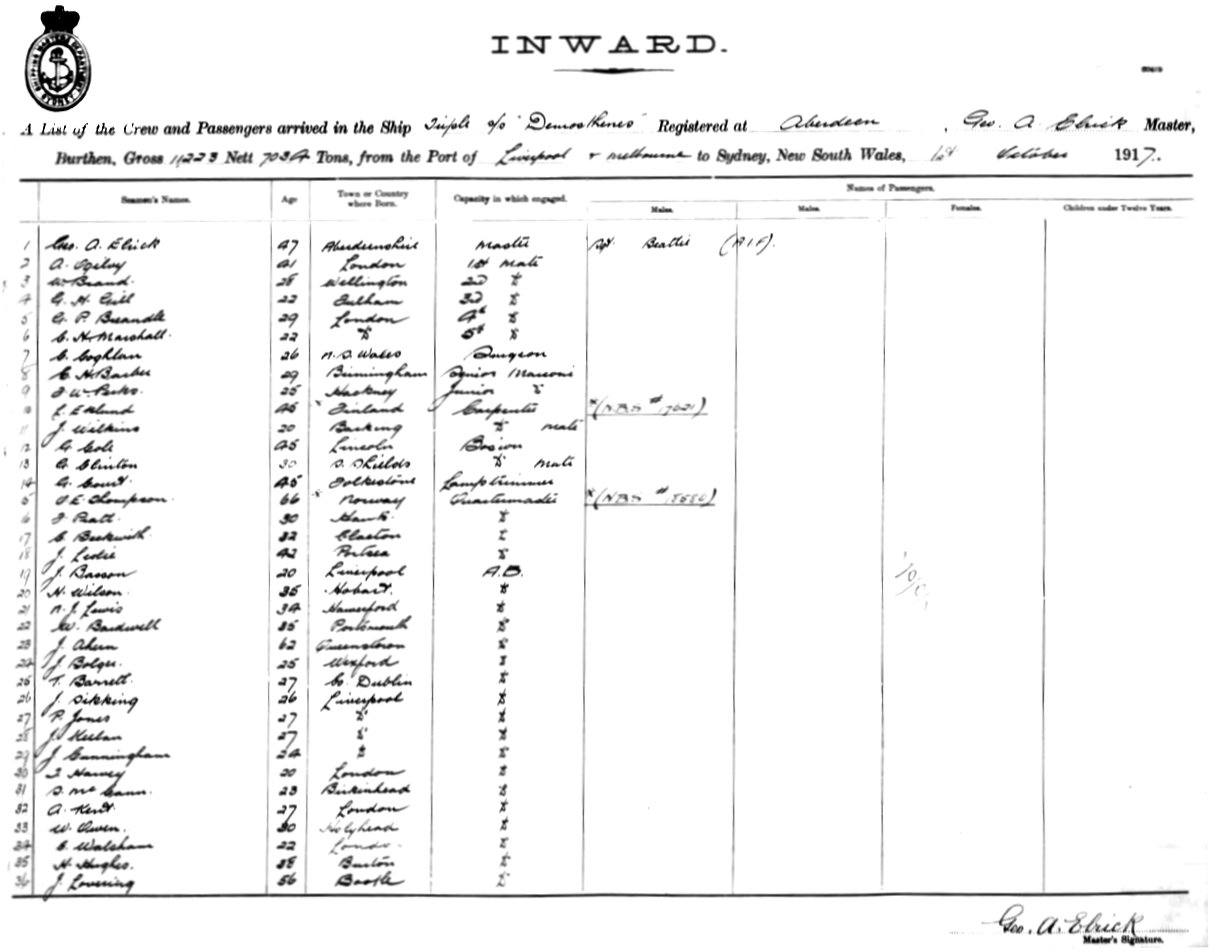 SHIPPING MASTERS DEPARTMENT SYDNEY
INWARD.
A List of the Crew and Passengers arrived in the Ship Triple s/s "Demosthenes" Registered at Aberdeen, Geo. A. Elrick Master,
Burthen, Gross 11223 Nett 7034 Tons, from the Port of Liverpool & Melbourne to Sydney, New South Wales, 1st October 1917.
Names of Passengers.
Seamen's Names. Age Town or Country where Born. Capacity in which engaged. Males. Males. Females. Children under Twelve Years.
1 Geo. A. Elrick 47 Aberdeenshire Master Sgt. Beattie (A.I.F).
2 A. Ogilvy 41 London 1st Mate
3 W. Brand 28 Wellington 2nd "
4 G. H. Gill 22 Fulham 3rd "
5 G. P. Breandle 29 London 4th "
6 C. H. Marshall. 22 " 5th "
7 C. Coghlan 26 N. S. Wales Surgeon
8 C. H. Barber 29 Birmingham Senior Marconi
9 F. W. Perks. 25 Hackney Junior "
10 E. Eklund 45 × Finland Carpenter × (NBS # 17621)
11 J. Wilkins 20 Barking " Mate
12 G. Cole 45 Lincoln Bosun
13 G. Clinton 30 S. Shields " Mate
14 G. Court. 45 Folkestone Lamptrimmer
15 T. E. Thompson. 66 × Norway Quartermaster × (NBS # 18586)
16 F. Pratt. 30 Hants. "
17 C. Beckwith. 32 Clacton "
18 J. Leslie 42 Portsea "
19 J. Basson 20 Liverpool A.B.
20 H. Wilson. 35 Hobart. "
21 N. J. Lewis 34 Haverford "
22 W. Bardwell 35 Portsmouth "
23 J. Ahern 62 Queenstown "
24 J. Bolger. 25 Wexford "
25 T. Barrett. 27 Co. Dublin "
26 J. Sikking 26 Liverpool "
27 P. Jones 27 " "
28 J. Keelan 27 " "
29 J. Cunningham 24 " "
30 T. Harvey 20 London "
31 S. McCann. 23 Birkinhead "
32 A. Kent. 27 London "
33 W. Owen. 30 Holyhead "
34 C. Walsham 22 London "
35 H. Hughes. 38 Burton "
36 J. Lovering 56 Bootle "
Geo. A. Elrick
Master's Signature.